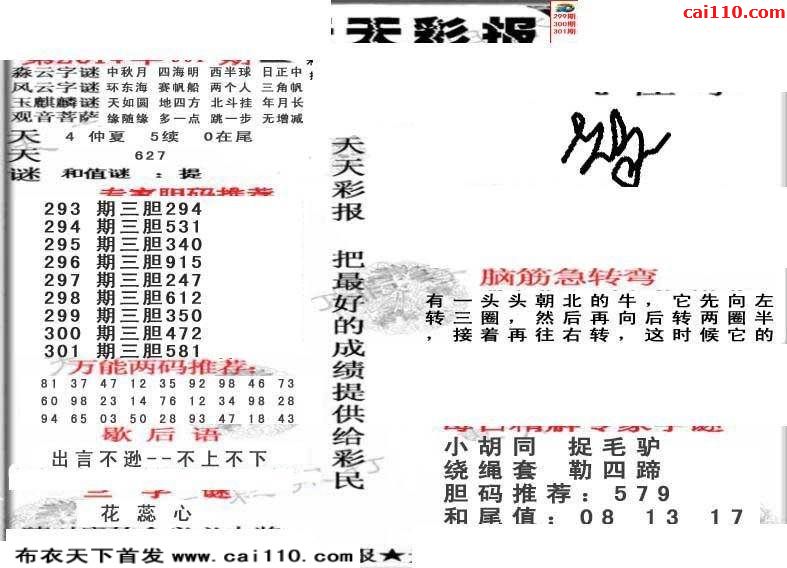 cai110.com
天天彩报
299期
300期
301期
淼云字谜 中秋月 四海明 西半球 日正中
风云字谜 环东海 赛帆船 两个人 三角帆
玉麒麟谜 天如圆 地四方 北斗挂 年月长
观音菩萨 缘随缘 多一点 跳一步 无增减
天 4 仲夏 5续 0在尾
天 627
谜 和值谜 :提
专家胆码推荐
293 期三胆294
294 期三胆531
295 期三胆340
296 期三胆915
297 期三胆247
298 期三胆612
299 期三胆350
300 期三胆472
301 期三胆581
万能两码推荐:
81 37 47 12 35 92 98 46 73
60 98 23 14 76 12 34 98 28
94 65 03 50 28 93 47 18 43
歇后语
出言不逊--不上不下
三字谜
花蕊心
布衣天下首发 www.cai110.com
天天彩报 把最好的成绩提供给彩民
脑筋急转弯
有一头头朝北的牛，它先向左
转三圈，然后再向后转两圈半
，接着再往右转，这时候它的
每日精解专家字谜
小胡同 捉毛驴
绕绳套 勒四蹄
胆码推荐：579
和尾值：08 13 17